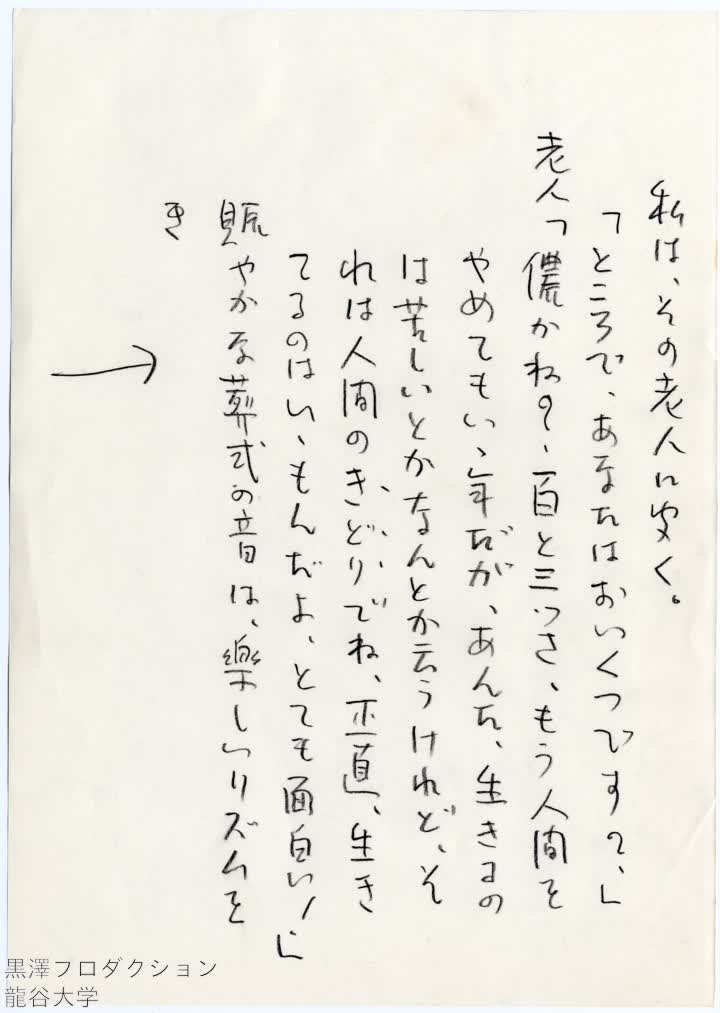 私は、その老人に聞く。
「ところで、あなたはおいくつです?、」
老人「儂かね?、百と三つさ、もう人間を
やめてもいゝ年だが、あんた、生きるの
は苦しいとかなんとか云うけれど、そ
れは人間のきどりでね、正直、生き
てるのはいゝもんだよ、とても面白い!」
賑やかな葬式の音は、楽しいリズムを
き
黒澤プロダクション
龍谷大学